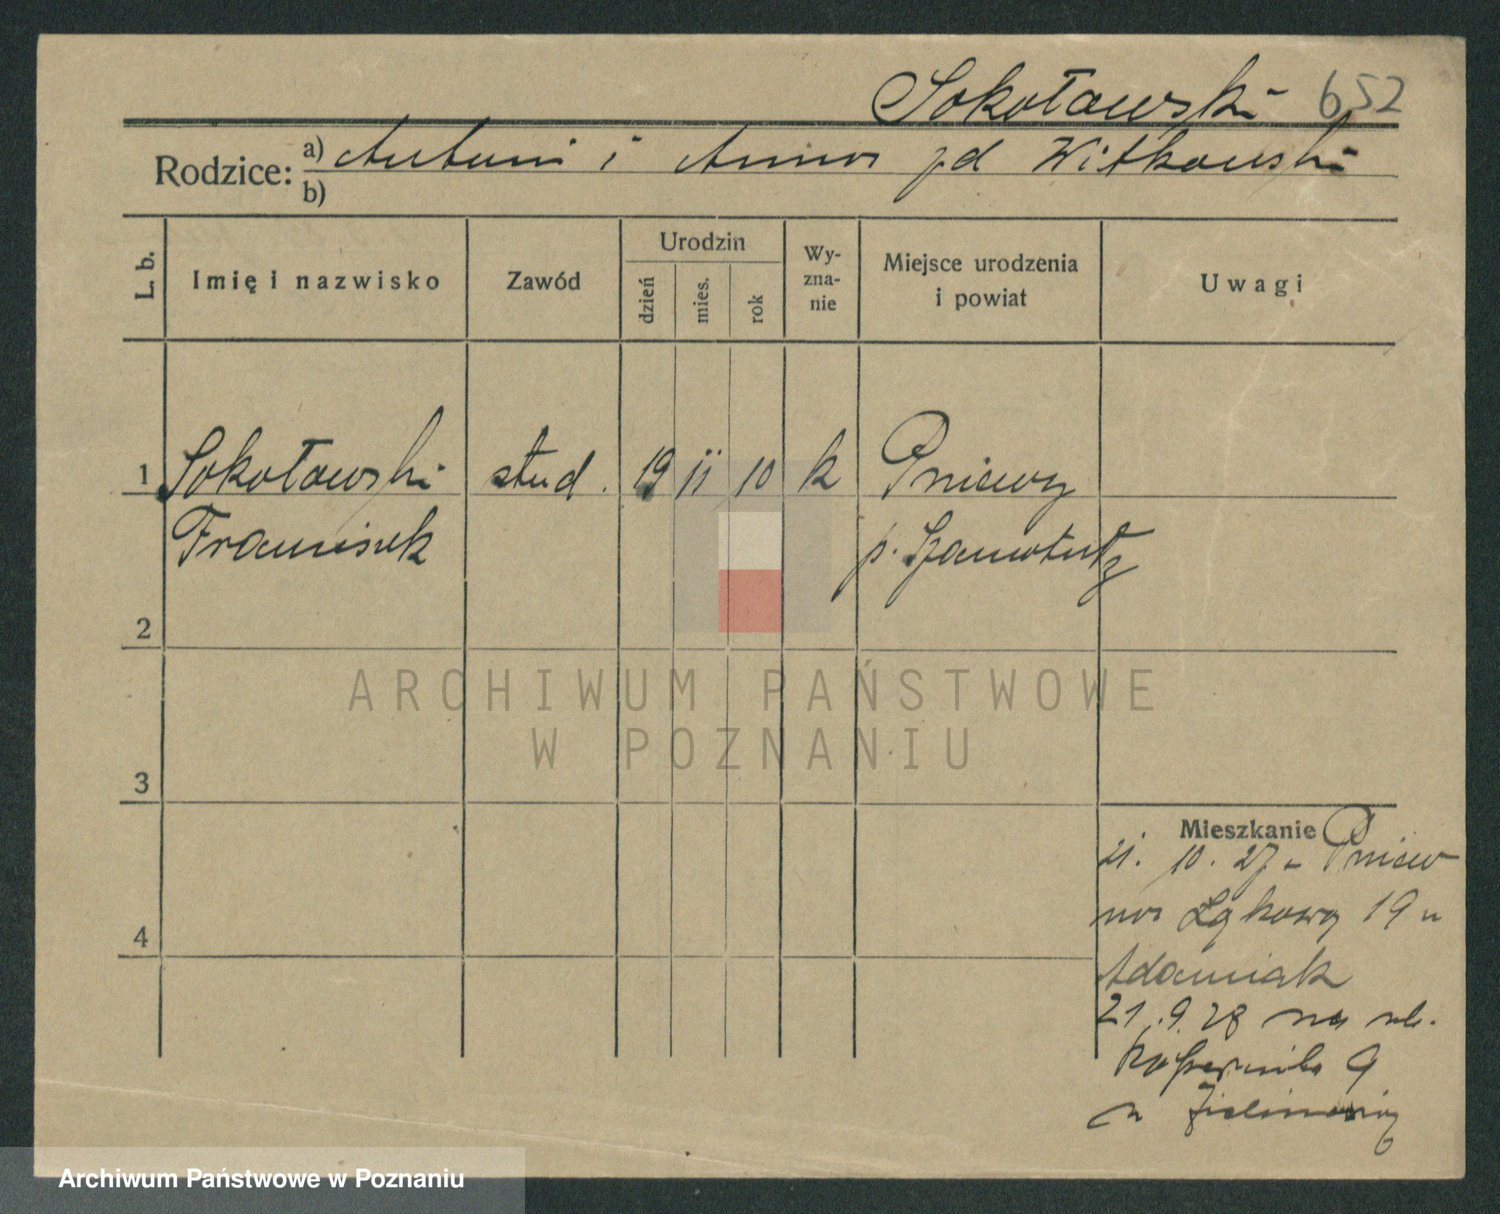 Sokołowski 652
Rodzice: a) Antoni i Anna zd Witkowski
b)
L. b. Imię i nazwisko Zawód Urodzin Wy-zna-nie Miejsce urodzenia i powiat Uwagi
dzień mies. rok
1 Sokołowski stud. 19 11 10 k Pniewy
Franciszek p. Szamotuły
2
ARCHIWUM PAŃSTWOWE
W POZNANIU
3
Mieszkanie
21. 10. 27 - Pniew
na Łąkową 19 u
Adamiak
21.9.28 na ul.
Kopernika 9
u
4
Archiwum Państwowe w Poznaniu